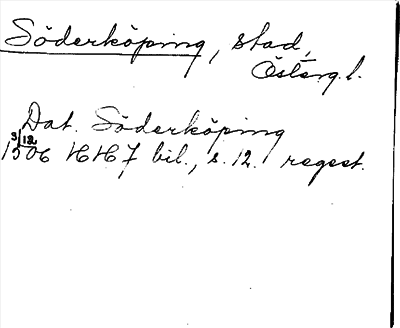 Söderköping, stad,
Österg.l.
Dat. Söderköping
3/12
1506 HH 7 bil., s. 12. regest.